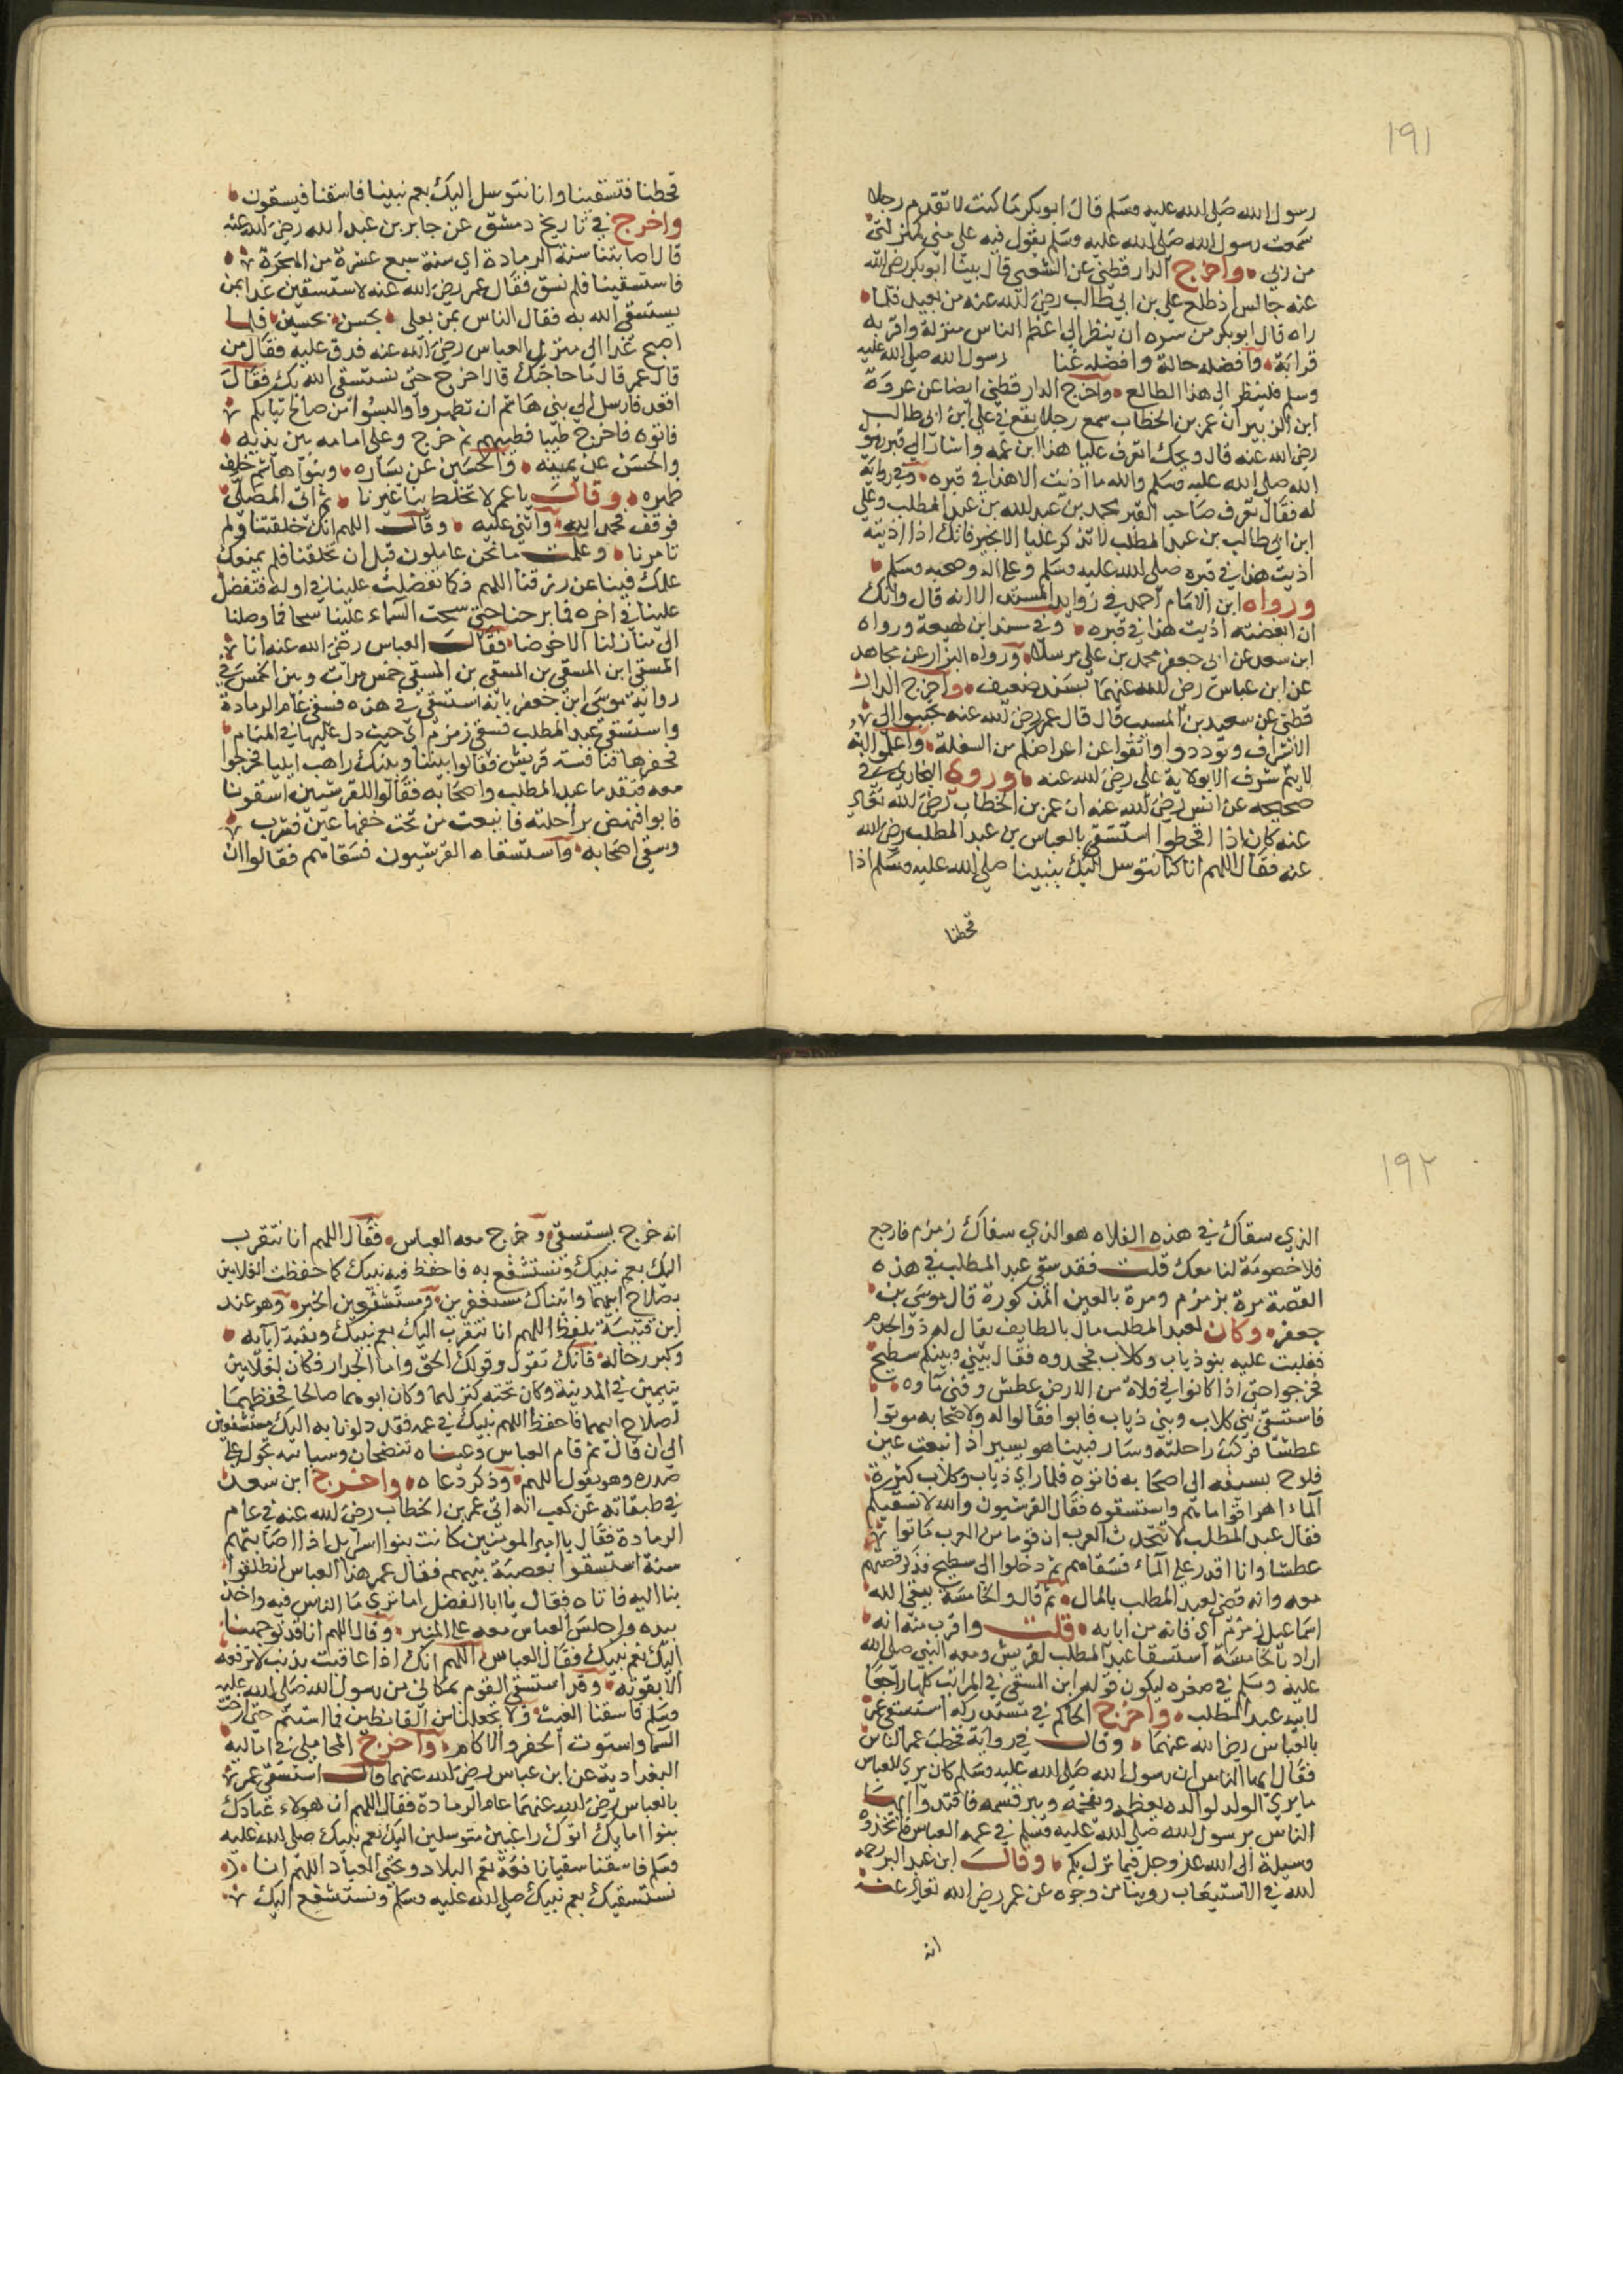 ١٩١
رسول الله صلى الله عليه وسلم قال ابو بكر ما كنت لا تقدم رجلا
سمعت رسول الله صلى الله عليه وسلم يقول فيه علي مني كمنزلتي
من ربي • واخرج الدار قطني عن الشعبي قال بينا ابو بكر رضي الله
عنه جالس اذ طلع علي بن ابي طالب رضي الله عنه من بعيد فلما
راه قال ابو بكر من سره ان ينظر الي اعظم الناس منزلة واقربه
قرابة • وافضله حالة وافضله غنا رسول الله صلى الله عليه
وسلم فلينظر الي هذا الطالع • واخرج الدار قطني ايضا عن عروة
ابن الزبير ان عمر بن الخطاب سمع رجلا يقع في علي ابن ابي طالب
رضي الله عنه قال ويحك اتعرف عليا هذا ابن عمه واشار الي قبره
الله صلى الله عليه وسلم والله ما اذيت الا هذا في قبره • وفي رواية
له فقال تعرف صاحب القبر محمد بن عبد الله بن عبد المطلب وعلي
ابن ابي طالب بن عبد المطلب لا تذكر عليا الا بخير فانك اذا اذيته
اذيت هذا في قبره صلى الله عليه وسلم وعلى اله وصحبه وسلم •
ورواه ابن الامام احمد في زوايد المسند الا انه قال وانك
ان ابغضته اذيت هذا في قبره • وفي سند ابن لهيعة ورواه
ابن سعد عن ابي جعفر محمد بن علي مرسلا • ورواه البزار عن مجاهد
عن ابن عباس رضي الله عنهما بسند ضعيف • واخرج الدار
قطني عن سعيد بن المسيب قال قال عمر رضي الله عنه تحببوا الي
الاشراف وتوددوا واتقوا عن اعراضكم من السفلة • واعلموا انه
لا يتم شرف الا بولاية علي رضي الله عنه • وروي البخاري في
صحيحه عن انس رضي الله عنه ان عمر بن الخطاب رضي الله تعالى
عنه كان اذا اقحطوا استسقى بالعباس بن عبد المطلب رضي الله
عنه فقال اللهم انا كنا نتوسل اليك بنبينا صلى الله عليه وسلم اذا
قحطنا
قحطنا فتسقينا وانا نتوسل اليك بعم نبينا فاسقنا فيسقون •
واخرج في تاريخ دمشق عن جابر بن عبد الله رضي الله عنه
قال اصابتنا سنة الرمادة اي سنة سبع عشرة من الهجرة •
فاستسقينا فلم نسق فقال عمر رضي الله عنه لاستسقين غدا بمن
يستسقي الله به فقال الناس بمن بعلي • بحسن • بحسين • فلما
اصبح غدا الي منزل العباس رضي الله عنه فدق عليه فقال من
قال عمر قال ما حاجتك قال اخرج حتى نستسقي الله بك فقال
اقعد فارسل الي بني هاشم ان تطهروا والبسوا من صالح ثيابكم
فاتوه فاخرج طيبا فطيبهم ثم خرج وعلي امامه بين يديه •
والحسن عن يمينه • والحسين عن يساره • وبنوا هاشم خلف
ظهره • وقال يا عمر لا تخلط بنا غيرنا • ثم اتى المصلى
فوقف فحمد الله • واثني عليه • وقال اللهم انك خلقتنا ولم
تامرنا • وعلمت ما نحن عاملون قبل ان تخلقنا فلم يمنعك
علمك فينا عن رزقنا اللهم فكما تفضلت علينا في اوله فتفضل
علينا في اخره فما برحنا حتى سحت السماء علينا سحا فما وصلنا
الى منازلنا الا خوضا • فقال العباس رضي الله عنه انا
المسقي ابن المسقي بن المسقي بن المسقي خمس مرات وبين الخمس في
رواية موسى ابن جعفر بانه استسقى في هذه فسقي عام الرمادة
واستسقى عبد المطلب فسقي زمزم اي حيث دل عليها في المنام
فحفرها فنافسته قريش فقالوا بيننا وبينك راهب ايليا فخرجوا
معه فنفد ما عبد المطلب واصحابه فقالوا للقرشيين اسقونا
فابوا فنهض براحلته فانبعث من تحت خفها عين فشرب
وسقى اصحابه • واستسقاه القرشيون فسقاهم فقالوا ان
١٩٢
الذي سقاك في هذه الفلاه هو الذي سقاك زمزم فارجع
فلا خصومة لنا معك قلت فقد سقي عبد المطلب في هذه
القصة مرة بزمزم ومرة بالعين المذكورة قال موسى بن
جعفر • وكان لعبد المطلب مال بالطايف يقال له ذو الهدم
فغلبت عليه بنو ذياب وكلاب فجحدوه فقال بيني وبينكم سطيح
فخرجوا حتى اذا كانوا في فلاة من الارض عطش وفني ماوه •
فاستسقي بني كلاب وبني ذياب فابوا فقالوا له ولاصحابه موتوا
عطشا فركب راحلته وسار فبينا هو يسير اذ انبعث عين
فلوح بسيفه الى اصحابه فاتوه فلما راي ذياب وكلاب كثرة
الماء اهراقوا ماهم واستسقوه فقال القرشيون والله لا نسقيكم
فقال عبد المطلب لا تتحدث العرب ان قوما من العرب ماتوا
عطشا وانا اقدر على الماء فسقاهم ثم دخلوا الى سطيح فذكر قصتهم
معه وانه قضي لعبد المطلب بالمال • ثم قال والخامسة يعني الله
اسماعيل زمزم اي فانه من ابايه • قلت واقرب منه انه
اراد بالخامسة استسقا عبد المطلب لقريش ومعه النبي صلى الله
عليه وسلم في صغره ليكون قوله ابن المسقي في المراتب كلها راجعا
لابيه عبد المطلب • واخرج الحاكم في مستدركه استسقى عمر
بالعباس رضي الله عنهما • وقال في رواية فخطب عمر الناس
فقال ايها الناس ان رسول الله صلى الله عليه وسلم كان يري للعباس
ما يري الولد لوالده يعظمه ويفخمه ويبر قسمه فاقتدوا ايها
الناس برسول الله صلى الله عليه وسلم في عمه العباس فاتخذوه
وسيلة الى الله عز وجل فيما نزل بكم • وقال ابن عبد البر رحمه
الله في الاستيعاب روينا من وجوه عن عمر رضي الله تعالى عنه
انه
انه خرج يستسقي وخرج معه العباس • فقال اللهم انا نتقرب
اليك بعم نبيك ونستشفع به فاحفظ فيه نبيك كما حفظت الغلامين
بصلاح ابيهما واتيناك مستغفرين • ومستشفعين الخبر • وهو عند
ابن قتيبة بلفظ اللهم انا نتقرب اليك بعم نبيك وبقية ابايه •
وكبر رجاله • فانك تقول وقولك الحق واما الجدار فكان لغلامين
يتيمين في المدينة وكان تحته كنز لهما وكان ابوهما صالحا فحفظهما
لصلاح ابيهما فاحفظ اللهم نبيك في عمه فقد دلونا به اليك مستشفعين
الى ان قال ثم قام العباس وعيناه تنضحان وسبابته تجول على
صدره وهو يقول اللهم • وذكر دعاه • واخرج ابن سعد
في طبقاته عن كعب انه اتي عمر بن الخطاب رضي الله عنه في عام
الرمادة فقال يا امير المومنين كانت بنوا اسرايل اذا اصابتهم
سنة استسقوا بعصبة نبيهم فقال عمر هذا العباس انطلقوا
بنا اليه فاتاه فقال يا ابا الفضل اما تري ما الناس فيه واخذ
بيده واجلس العباس معه على المنبر • وقال اللهم انا قد توجهنا
اليك بعم نبيك فقال العباس اللهم انك اذا عاقبت بذنب لا ترفعه
الا بتوبة • وقد استسقي القوم بمكاني من رسول الله صلى الله عليه
وسلم فاسقنا الغيث • ولا تجعلنا من القانطين فما استتم حتى ارخت
السما واستوت الحفر والاكام • واخرج المحاملي في اماليه
البغدادية عن ابن عباس رضي الله عنهما قال استسقى عمر
بالعباس رضي الله عنهما عام الرمادة فقال اللهم ان هولاء عبادك
بنوا امايك اتوك راغبين متوسلين اليك بعم نبيك صلى الله عليه
وسلم فاسقنا سقيا نافعة تعم البلاد وتحيي العباد اللهم انا
نستسقيك بعم نبيك صلى الله عليه وسلم ونستشفع اليك